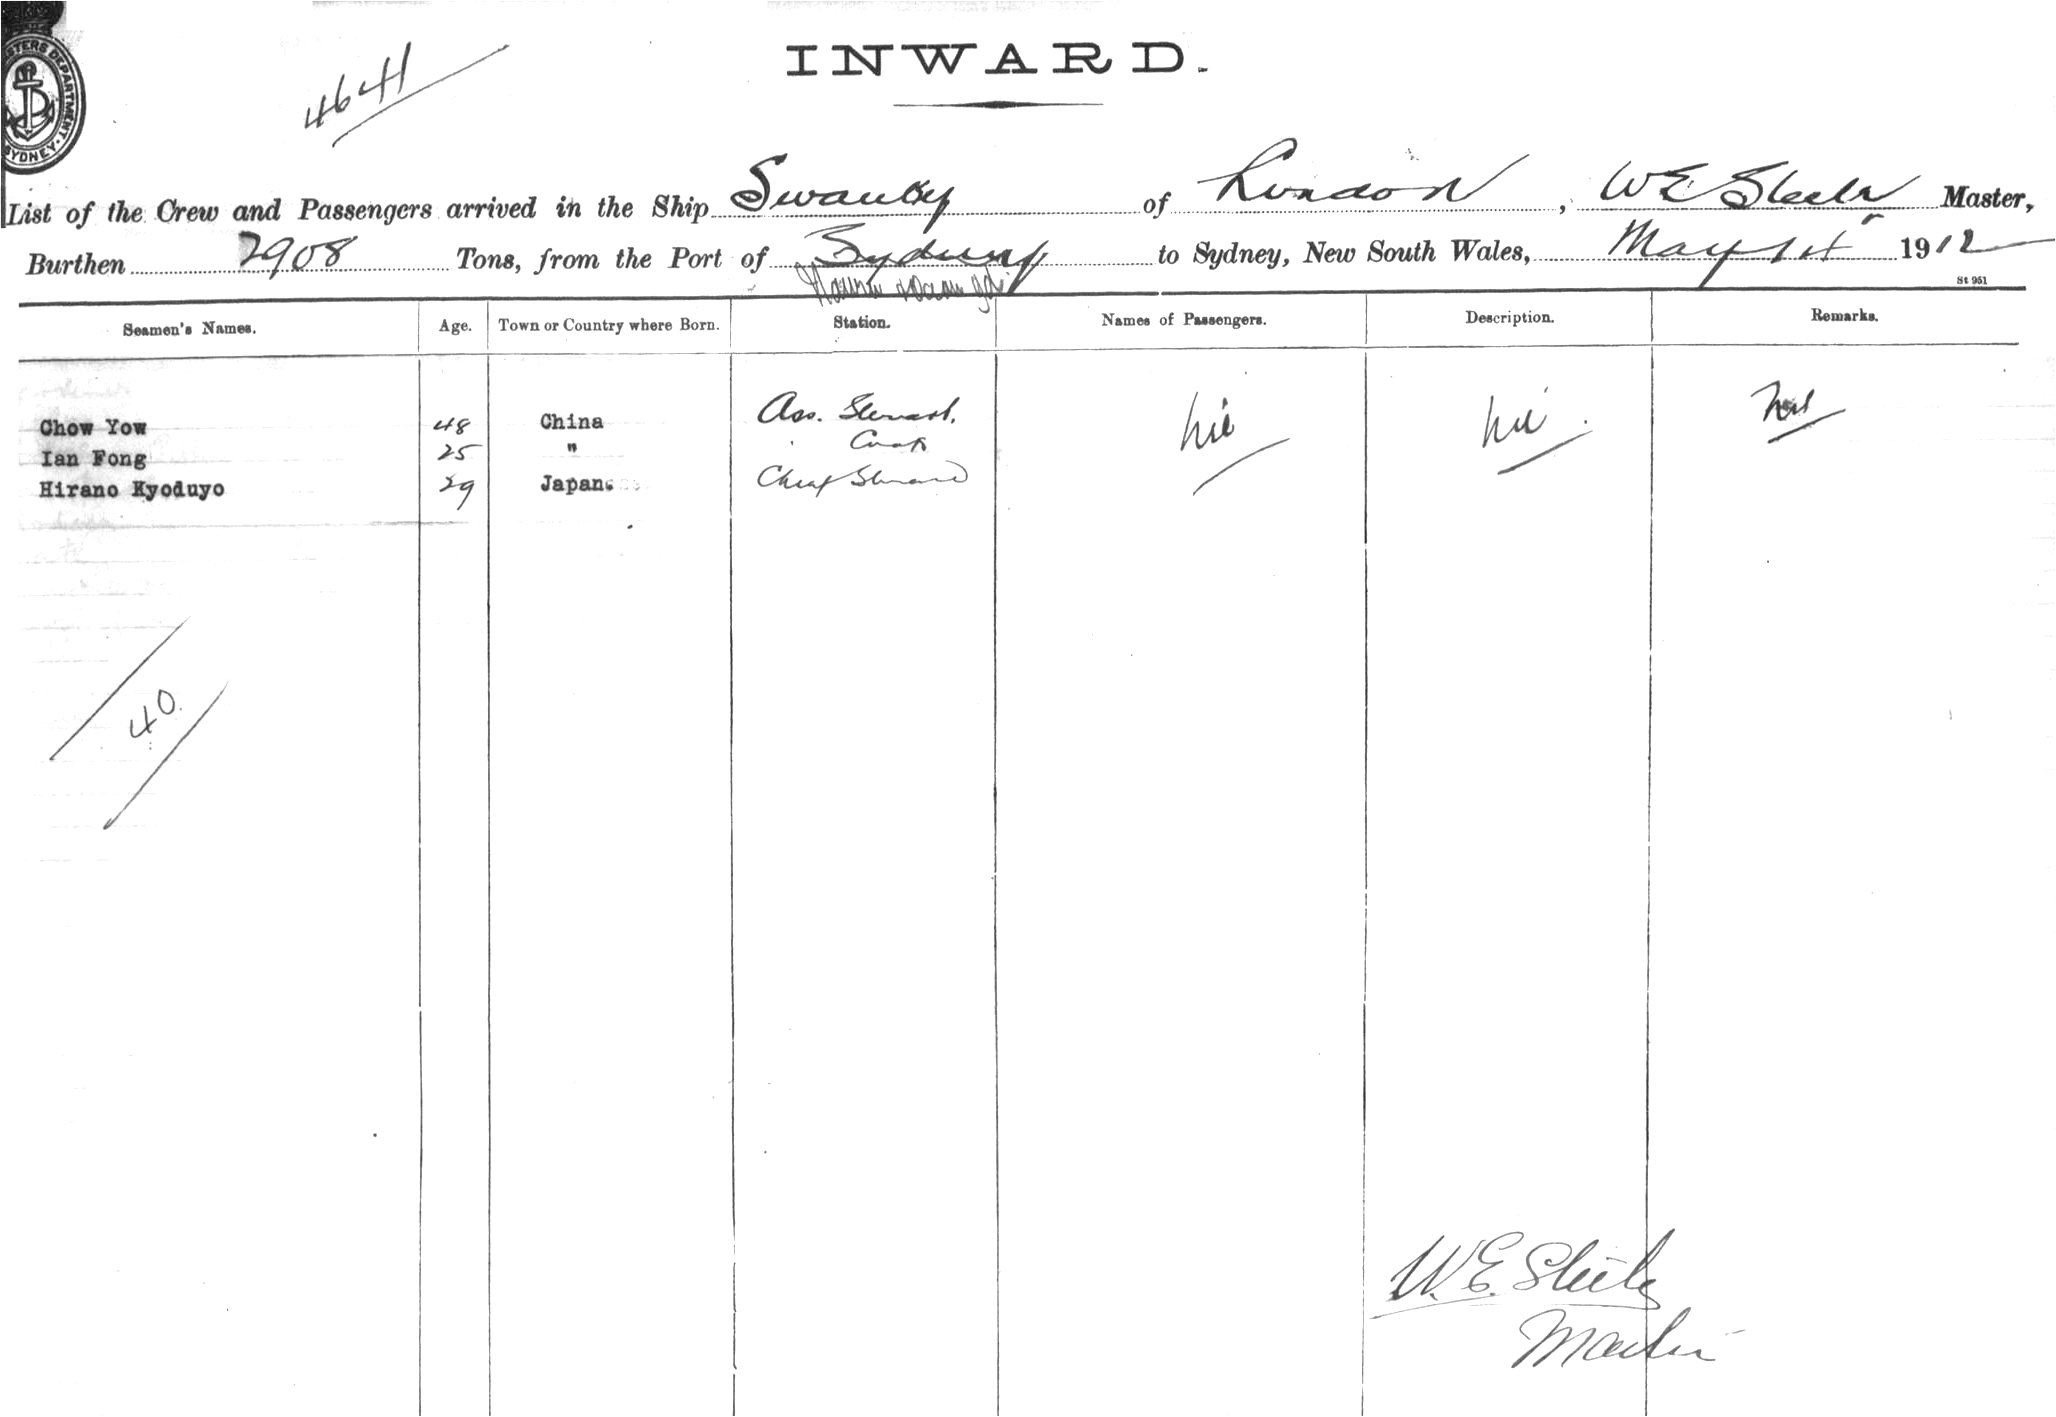 STERS DEPARTMENT. SYDNEY.
4641
INWARD.
List of the Crew and Passengers arrived in the Ship Swanley of London, W E Steele Master,
Burthen 2908 Tons, from the Port of Sydney to Sydney, New South Wales, May 14 1912
Nauru
St 951
Seamen's Names. Age. Town or Country where Born. Station. Names of Passengers. Description. Remarks.
Chow Yow 48 China Ass. Steward. Nil Nil Nil
Ian Fong 25 " Cook
Hirano Kyoduyo 29 Japan. Chief Steward
40
W. E. Steele
Master